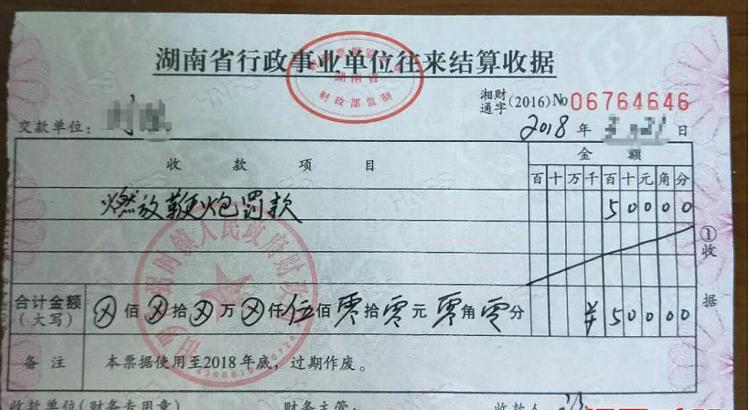 湖南省行政事业单位往来结算收据
湖南省
财政部监制
湘财通字(2016)No 06764646
交款单位：
2018 年 日
收款项目 金额
百十万千百十元角分
燃放鞭炮罚款 50000
①收据
合计金额(大写) ⊗佰⊗拾⊗万⊗仟伍佰零拾零元零角零分 ¥50000
备注 本票据使用至2018年底，过期作废。
镇人民政府财
收款单位(财务专用章) 财务主管： 收款人：